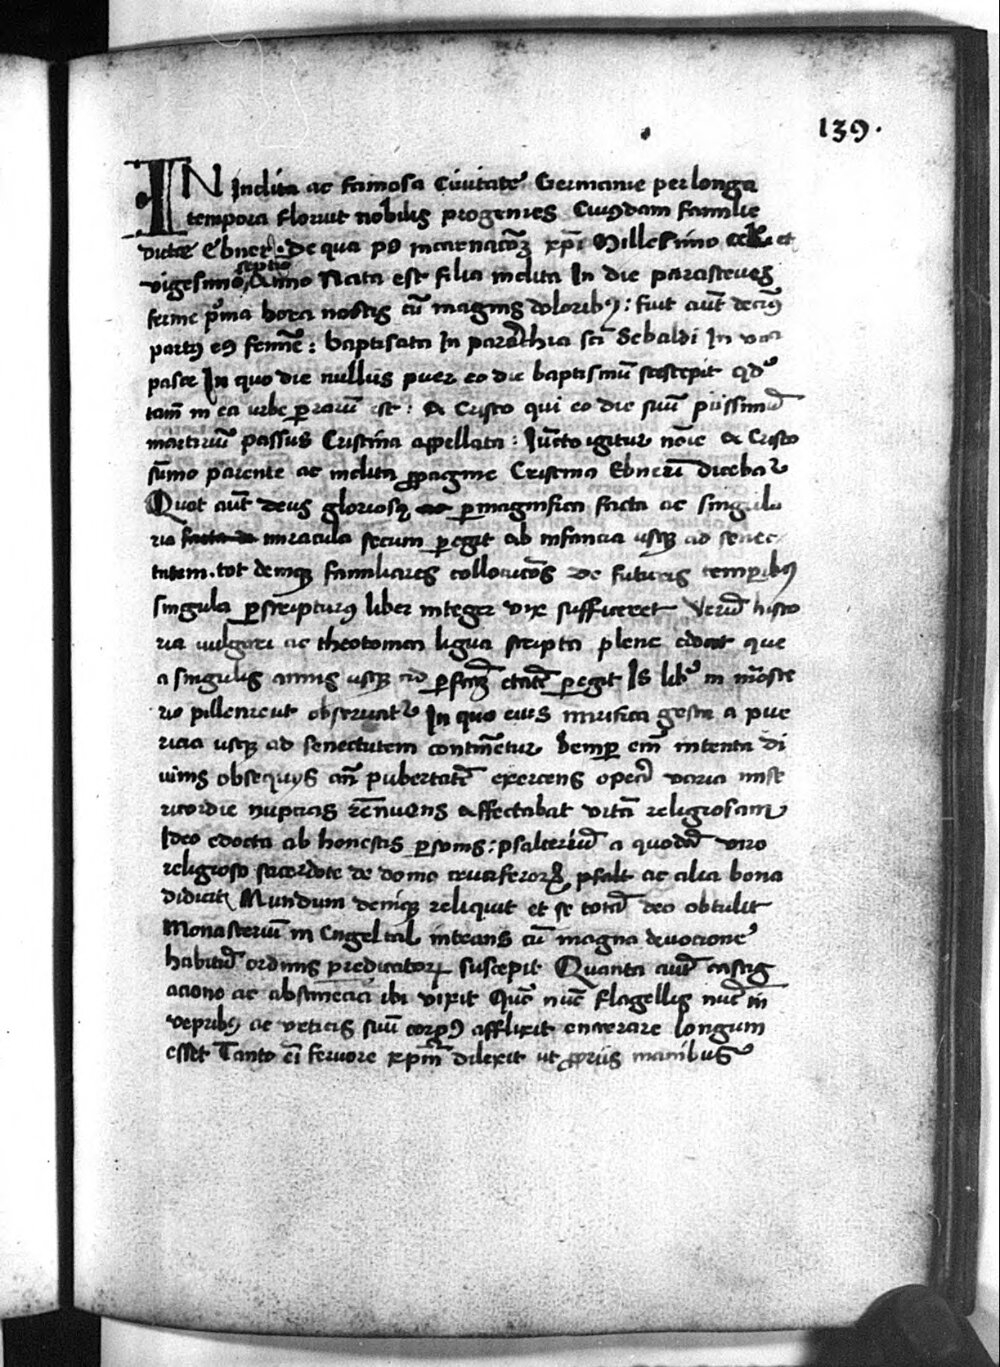 139.
IN Inclita ac famosa Ciuitate Germanie per longa
tempora floruit nobilis progenies Cuiusdam familie
dicte Ebner. De qua po incarnacōꝫ xpī Millesimo et
septīo
vigesimo Anno Nata est filia inclita In die parasceues
ferme pᵐa hora noctis cū magnis doloribꝰ: fuit aūt
partꝰ eꝰ: baptisata In parrochia scī Sebaldi In
pasce In quo die nullus puer eo die baptismū suscepit
tam̄ in ea urbe ꝑ rarū est: A Cristo qui eo die suū piissimū
martiriū passus Cristina appellata: Iūcto igitur nōīe A Cristo
sūmo parente ac inclita ꝓpagine Cristina Ebnerī dicebat᷑
Quot aūt deus gloriosꝰ ꝑmagnifica facta ac singula
ria facta miracula secum ꝑegit ab infancia usqꝫ ad senec
tutem. tot deniqꝫ familiares collocucōēs de futuris temporibꝰ
singula ꝑscripturꝰ liber integer vix sufficeret Verū histo
ria uulgari ac theotonica ligua scripta plene edocet que
a singulis annis usqꝫ ad ꝑfcāꝫ etatē ꝑegit Is libᵉ in mōste
rio pillenreut obseruat᷑ In quo eius mirifica gesta a pue
ricia usqꝫ ad senectutem continētur Semꝑ em̄ intenta di
uinis obsequijs añ pubertatē exercens opera varia mise
ricordie nupcias rēnuens affectabat vitā religiosam
Ideo edocta ab honestis ꝑsonis: psalteriū a quodā viro
religioso sacerdote de domo cruciferorꝝ psalt ac alia bona
didicit Mundum deniqꝫ reliquit et se totā deo obtulit
Monasteriū in Engeltal intrans cū magna deuocione
habitū ordinis predicatorꝝ suscepit Quanta aūt castig
acione ac abstinēcia ibi vixit Quō nūc flagellis nūc in
vepribꝰ ac vrticis suū corpꝰ afflixit enarrare longum
esset Tanto eī feruore xpm̄ dilexit ut ꝓpriis manibus